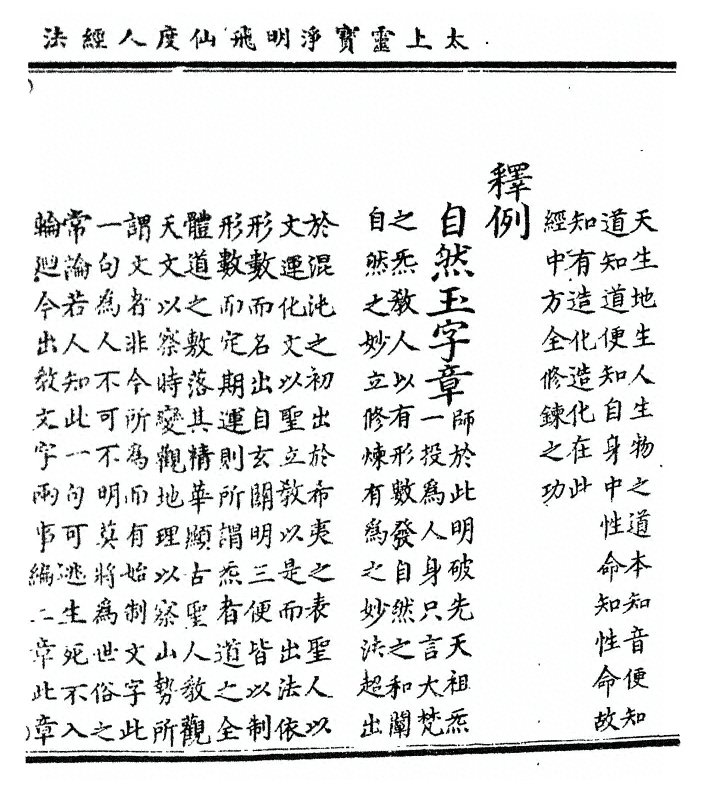 太上靈寶淨明飛仙度人經法
天生地生人生物之道本知音便知
道知道便知自身中性命知性命故
知有造化造化在此
經中方全修鍊之功
釋例
自然玉字章師於此明破先天祖炁
一投爲人身只言大梵
之炁教人以有形數發自然之和闡
自然之妙立修煉有爲之妙法超出
於混沌之初出於希夷之表聖人以
文運化文以聖立教以是而出法依
形數而名出自玄關明三便皆以制
形數而定期運則所謂炁者道之全
體道之敷落其精華顯古聖人教觀
天文以察時變觀地理以察山勢所
謂文者非今所爲而有始制文字此
一句為人不可不明莫將為世俗之
常論若人知此一句可逃生死不入
輪迴今出教文字兩事編二章此章